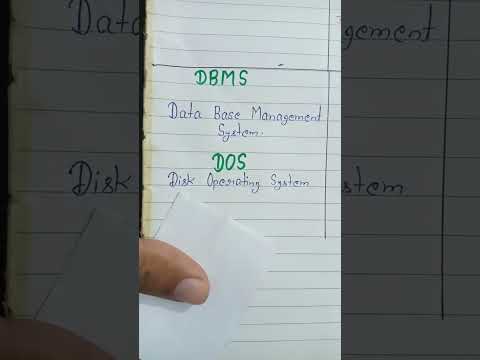 DBMS
Data Base Management
System.
DOS
Disk Operating System